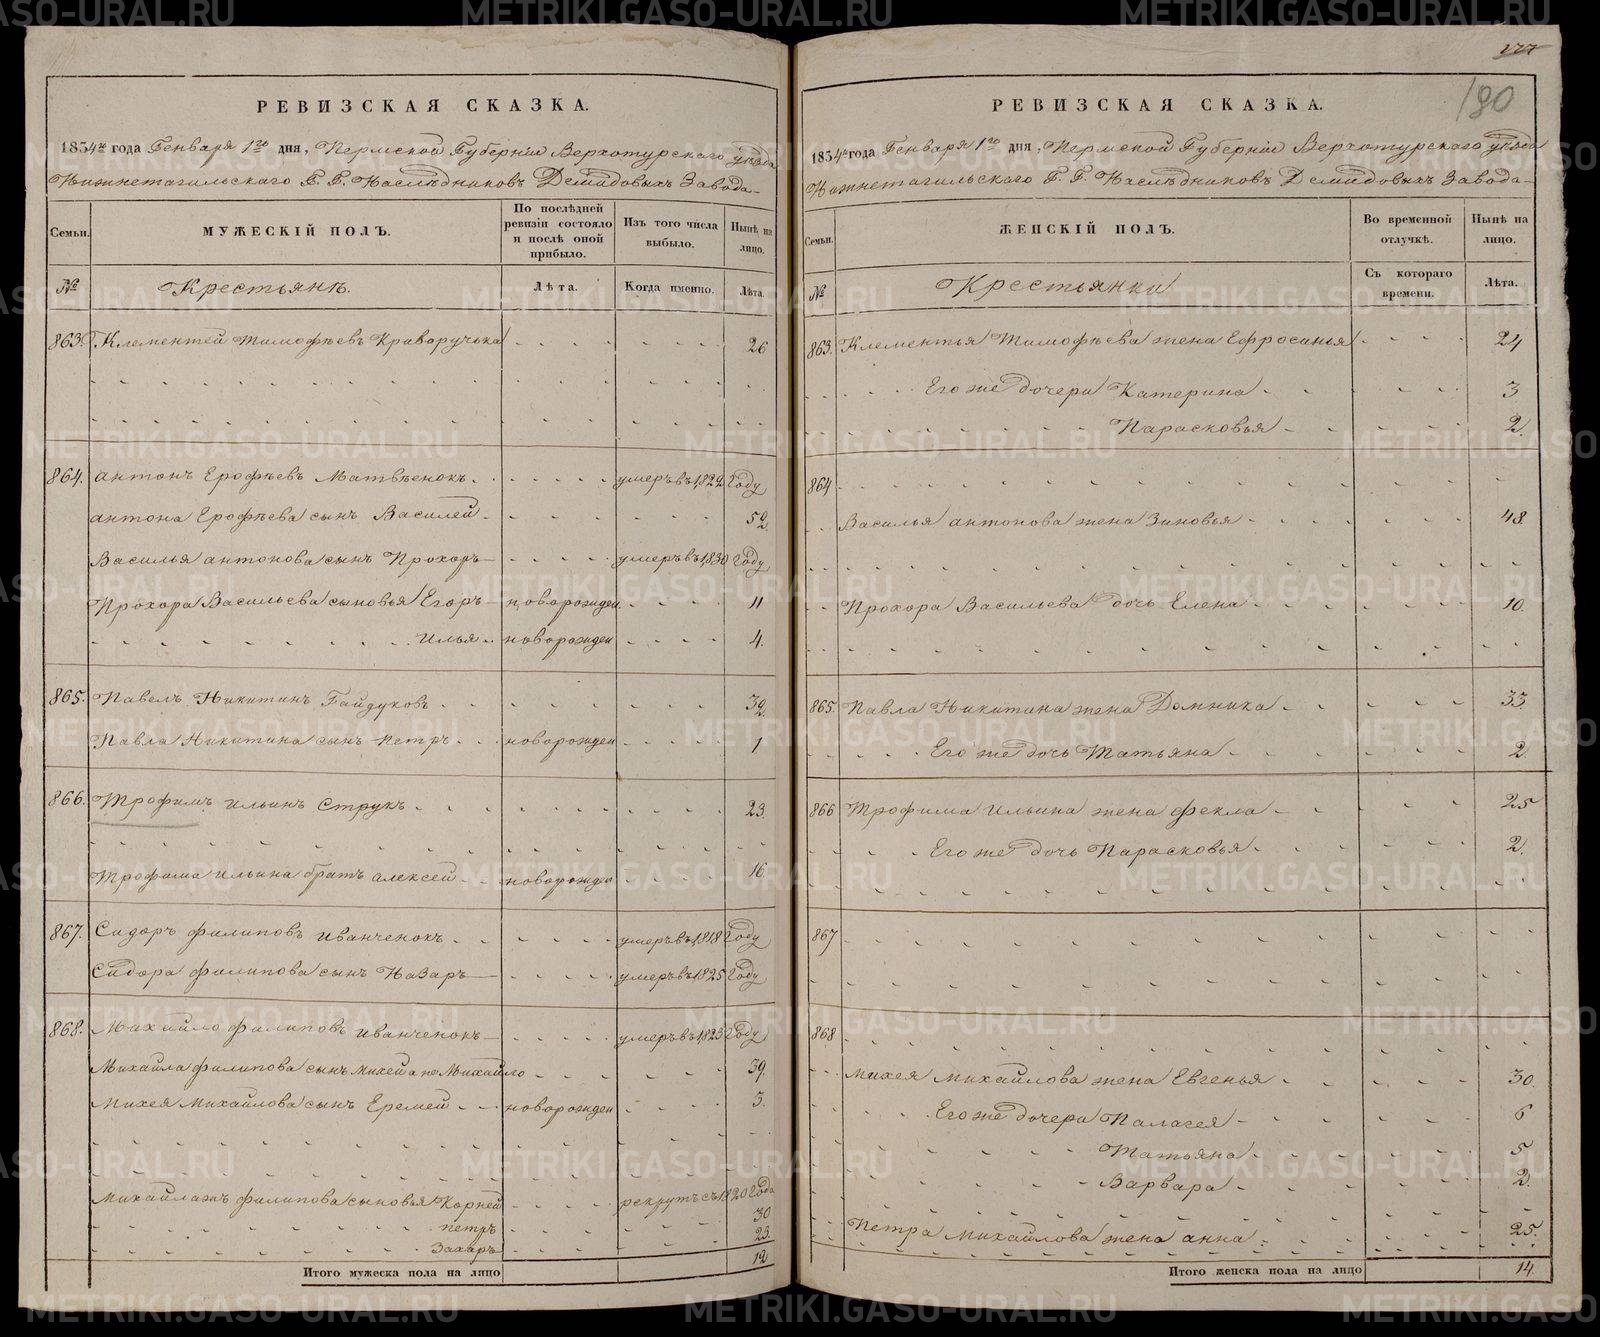 РЕВИЗСКАЯ СКАЗКА.
1834го года Генваря 1го дня, Пермской Губернии Верхотурского уѣзда
Нижнетагильского Г. Г. Наслѣдниковъ Демидовыхъ Завода
Семьи. МУЖЕСКІЙ ПОЛЪ. По послѣдней ревизіи состояло и послѣ оной прибыло. Изъ того числа выбыло. Нынѣ на лицо.
№ Крестьянъ. Лѣта. Когда именно. Лѣта.
863. Клементей Тимофѣевъ Криворучька 26
864. Антонъ Ерофѣевъ Матвѣенокъ умеръ въ 1822 году
Антона Ерофѣева сынъ Василей 52
Василья Антонова сынъ Прохоръ умеръ въ 1830 году
Прохора Васильева сыновья Егоръ новорожден 11
Илья новорожден 4.
865. Павелъ Никитинъ Гайдуковъ 32
Павла Никитина сынъ Петръ новорожден 1
866. Трофимъ Ильинъ Струкъ 23.
Трофима Ильина братъ Алексей новорожден 16
867. Сидоръ Филиповъ Иванченокъ умеръ въ 1818 году
Сидора Филипова сынъ Назаръ умеръ въ 1825 году
868. Михайло Филиповъ Иванченокъ умеръ въ 1823 году
Михайла Филипова сынъ Михей а не Михайло 39.
Михея Михайлова сынъ Еремей новорожден 3.
Михайлажъ Филипова сыновья Корней рекрутъ съ 1820 года
Петръ 30
Захаръ 23.
Итого мужеска пола на лицо 12
177
190
РЕВИЗСКАЯ СКАЗКА.
1834го года Генваря 1го дня, Пермской Губернии Верхотурского уѣзда
Нижнетагильского Г. Г. Наслѣдниковъ Демидовыхъ Завода
Семьи. ЖЕНСКІЙ ПОЛЪ. Во временной отлучкѣ. Нынѣ на лицо.
№ Крестьянки Съ котораго времени. Лѣта.
863. Клементья Тимофѣева жена Ефросинья 24
Его же дочери Катерина 3
Парасковья 2.
864
Василья Антонова жена Зиновья 48.
Прохора Васильева дочь Елена 10.
865. Павла Никитина жена Домника 33
Его же дочь Татьяна 2.
866 Трофима Ильина жена Фекла 25
Его же дочь Парасковья 2.
867
868
Михея Михайлова жена Евгенья 30.
Его же дочери Палагея 6
Татьяна 5
Варвара 2.
Петра Михайлова жена Анна 25.
Итого женска пола на лицо 14.
METRIKI.GASO-URAL.RU